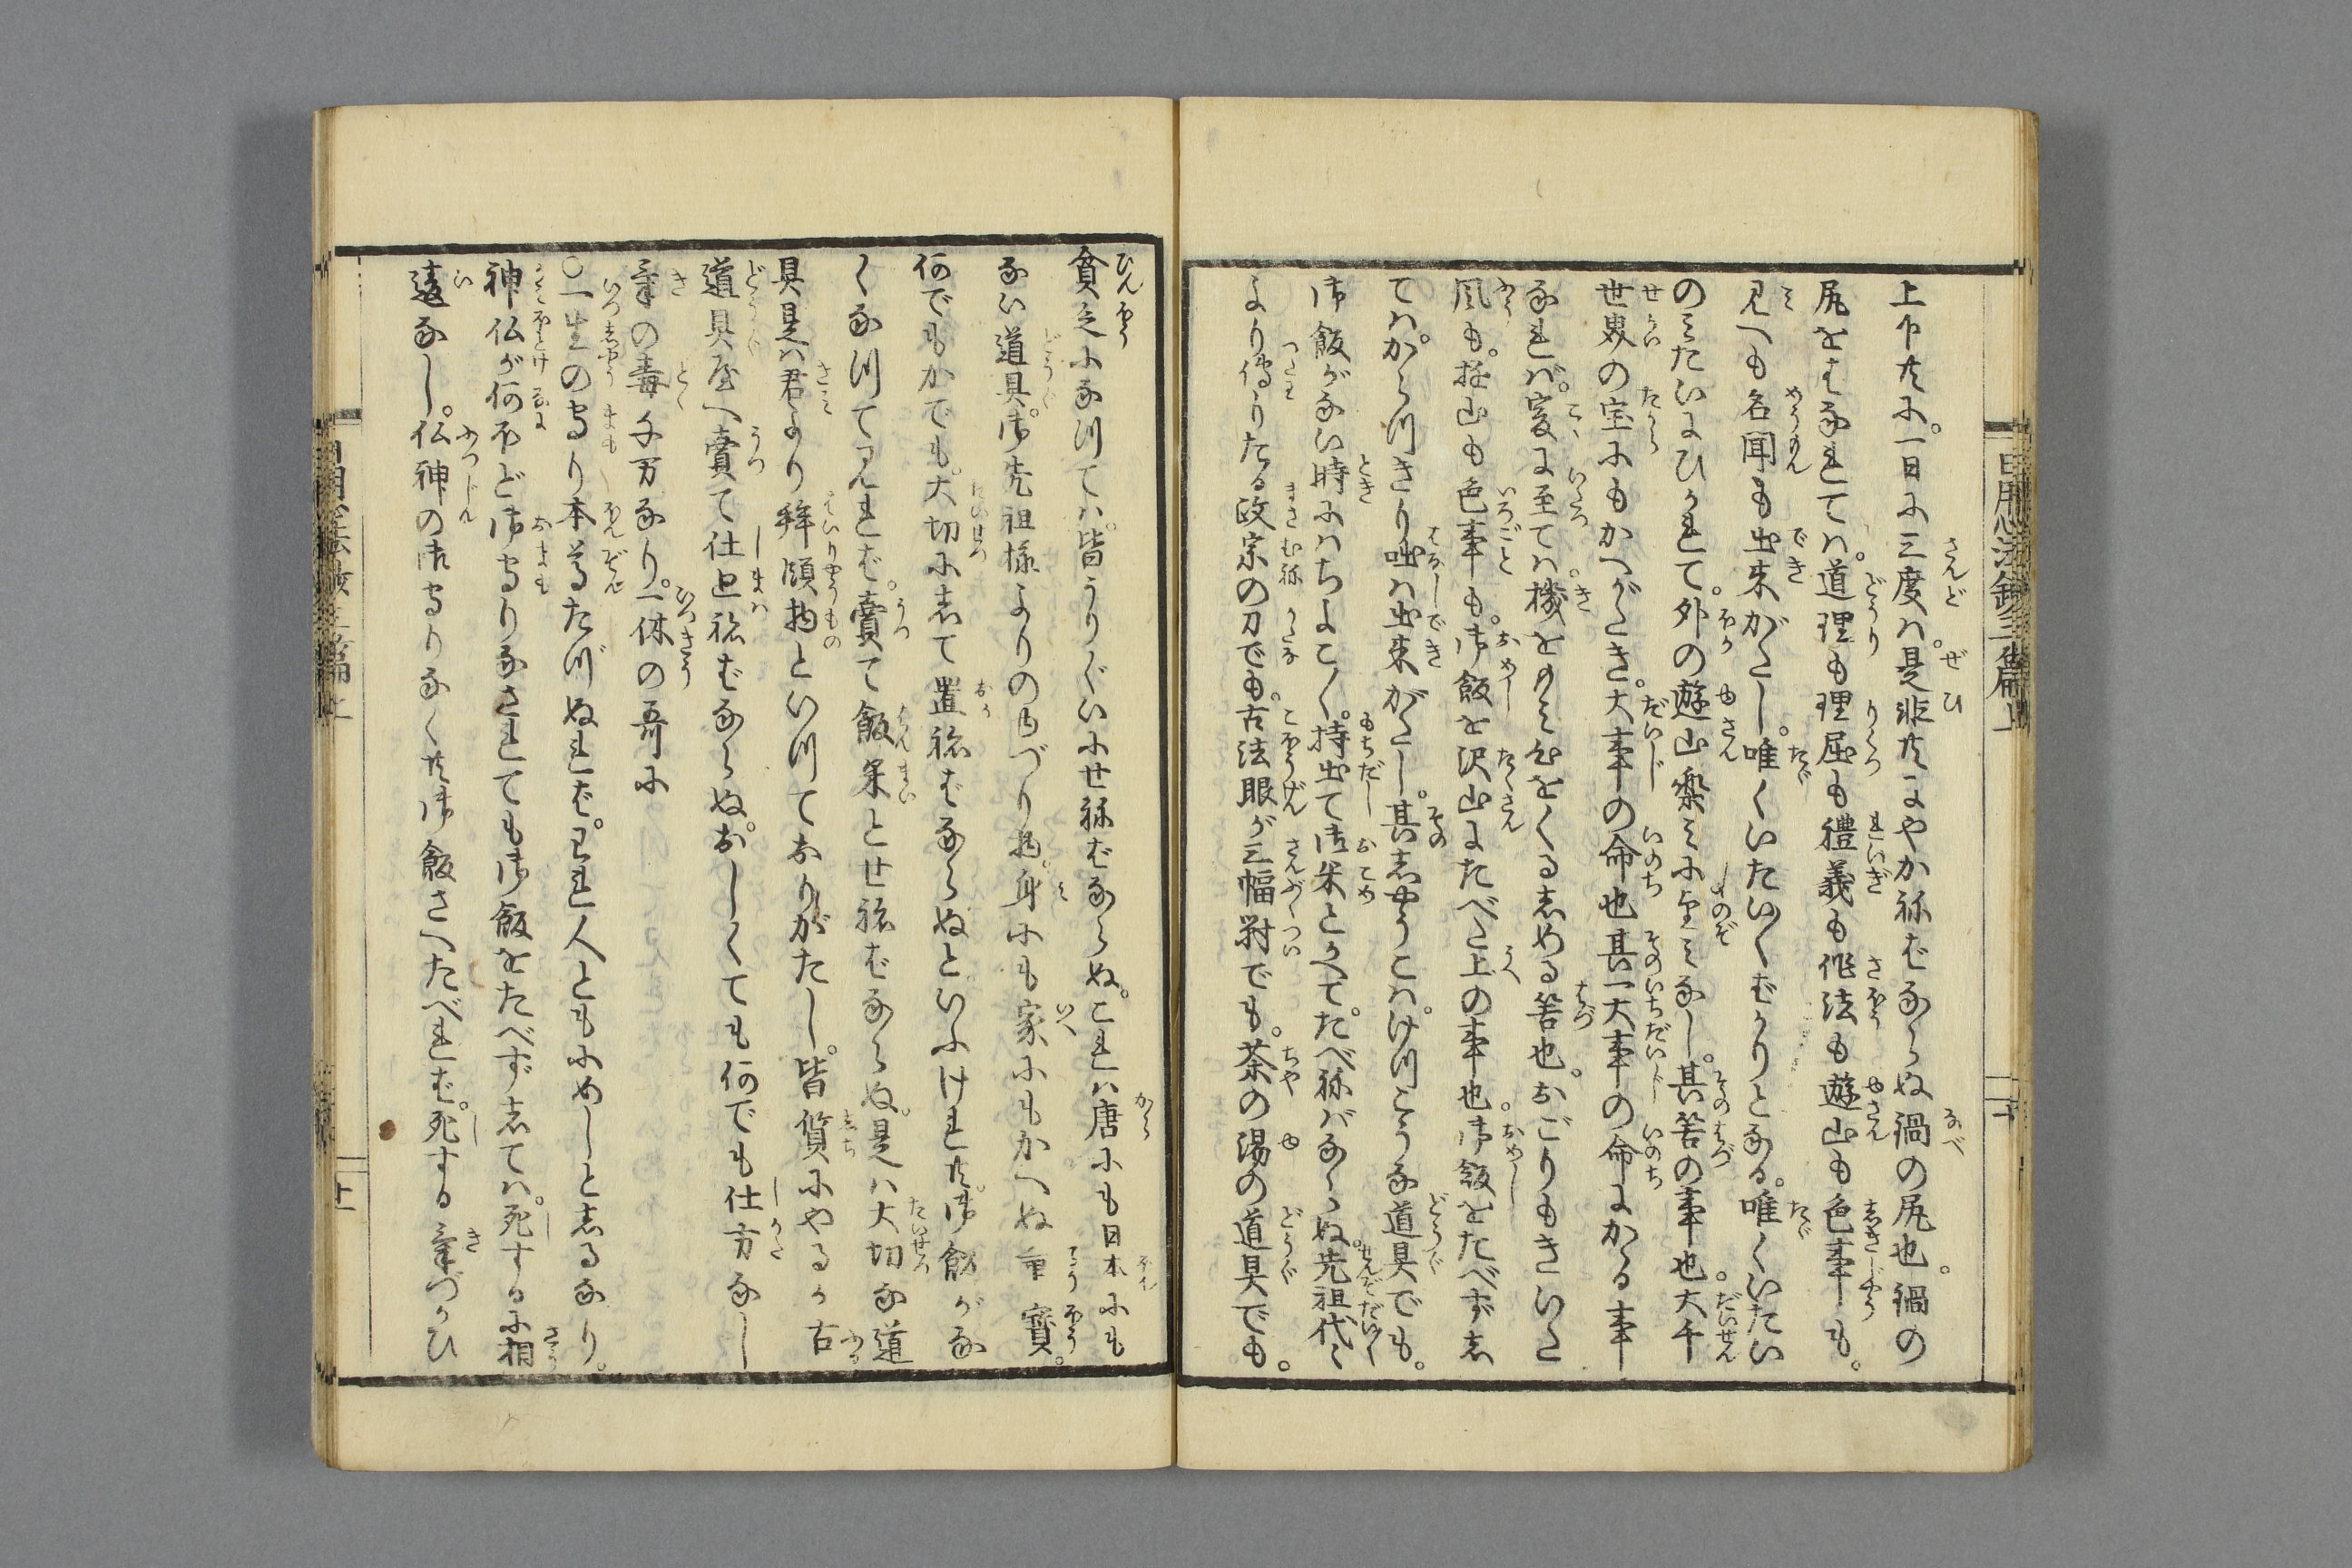 上下共に。一日に三度ハ。是非共にやかねばならぬ鍋の尻也。鍋の
尻をはなれてハ。道理も理屈も禮義も作法も遊山も色事も。
見へも名聞も出来がたし。唯くいたい〱ばかりとなる。唯くいたい
のミたいにひかれて。外の遊山楽ミに望ミなし。其筈の事也。大千
世界の宝にもかへがたき。大事の命也其一大事の命にかゝる事
なれバ。爰に至てハ。機をのミ心をくるしめる筈也。おごりもきいた
風も。遊山も色事も。御飯を沢山にたべた上の事也。御飯をたべずし
てハ。からつきり咄ハ出来がたし。其志やうこハ。けつこうな道具でも。
御飯がない時にハちよこ〱持出て御米とかへて。たべねバならぬ。先祖代々
より傳りたる政宗の刀でも。古法眼が三幅對でも。茶の湯の道具でも。
貧乏になつてハ。皆うりぐいにせねばならぬ。これハ唐にも日本にも
ない道具。御先祖様よりのゆづり物。身にも家にもかへぬ重寳。
何でもかでも。大切にして置ねばならぬといふけれ共。御飯がな
くなつて見れば。賣て飯米とせねばならぬ。是ハ大切な道
具是ハ君より拝領物といつてありがたし。皆質にやるか古
道具屋へ賣て仕廻ねばならぬ。おしくても何でも仕方なし
氣の毒千万なり。一休の哥に
〇一生の守り本尊たづぬれば。われ人ともにめしとしるなり。
神仏が何ほど御守りなされても御飯をたべずしてハ。死するに相
違なし。仏神の御守りなく共御飯さへたべれば。死する氣づかひ
日用心法鈔三篇上
十
日用心法鈔三篇上
十一